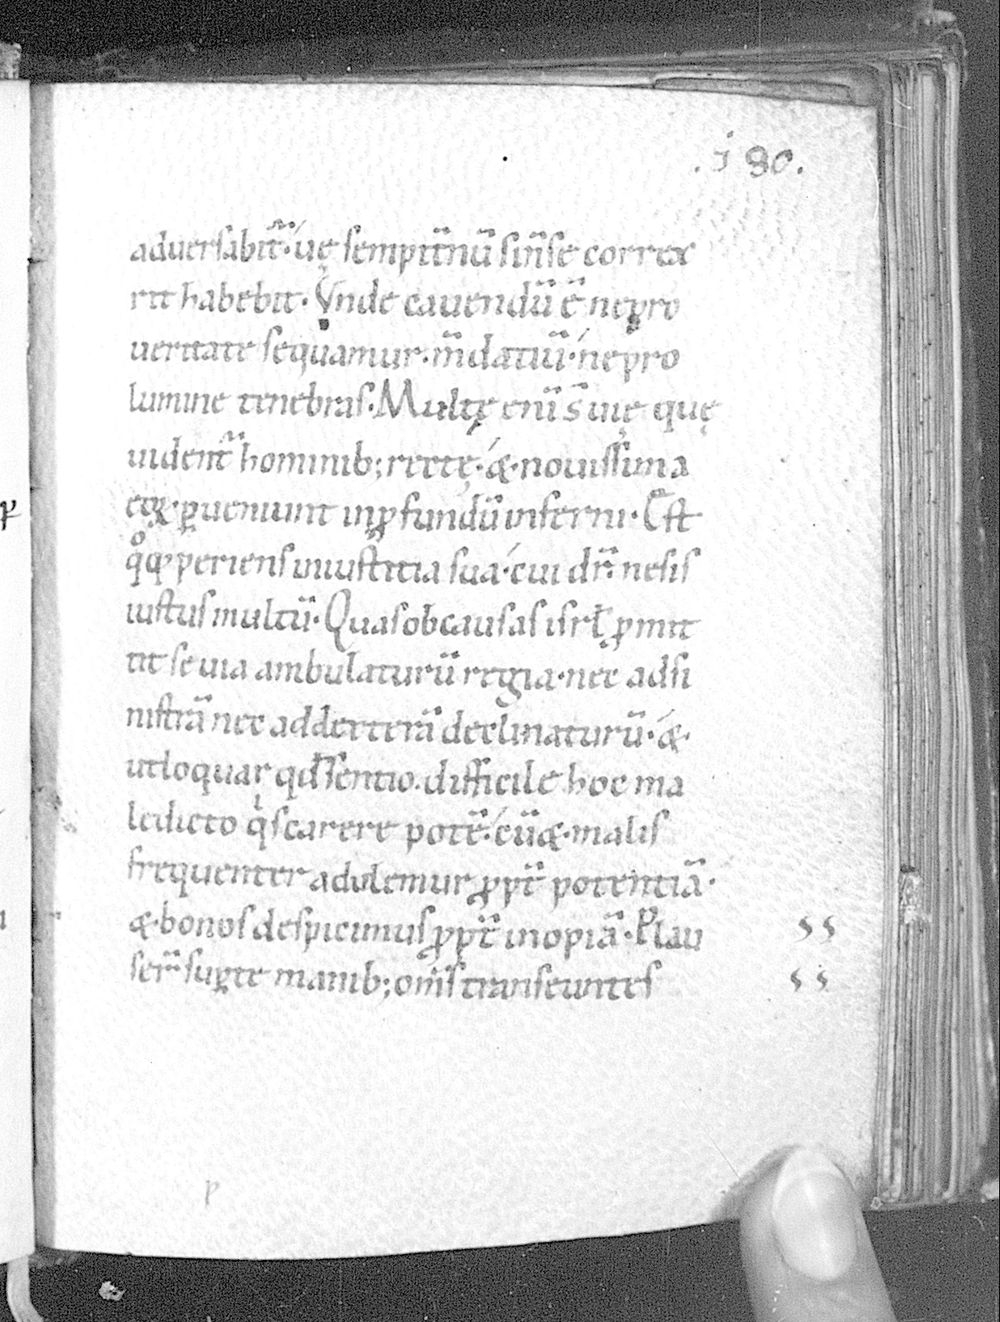 .i 80.
aduersabit᷑·́ uę sempit̅nū sin̅ se correx
rit habebit· Vnde cauendū ē ne pro
ueritate sequamur · m̅datiū·́ ne pro
lumine tenebras· Multę enī s̅ uię quę
uident᷑ hominib; rectę·́ & nouissima
eoꝝ ꝑueniunt in ꝓfundū inferni· Est
qͦꝙ periens in iustitia sua·́ cui dr̅· ne sis
iustus multū· Quas ob causas isrl̅ ꝓmit
tit se uia ambulaturū regia· nec ad si
nistrā nec ad dexterā declinaturū·́ &
ut loquar qd̅ sentio· difficile hoc ma
ledicto qͥs carere potē·́ cū & malis
frequenter adulemur ꝓpt̅ potentiā·
& bonos despicimus ꝓpt̅ inopiā· Plau
ser̅ suꝑ te manib; om̅s transeuntes
p